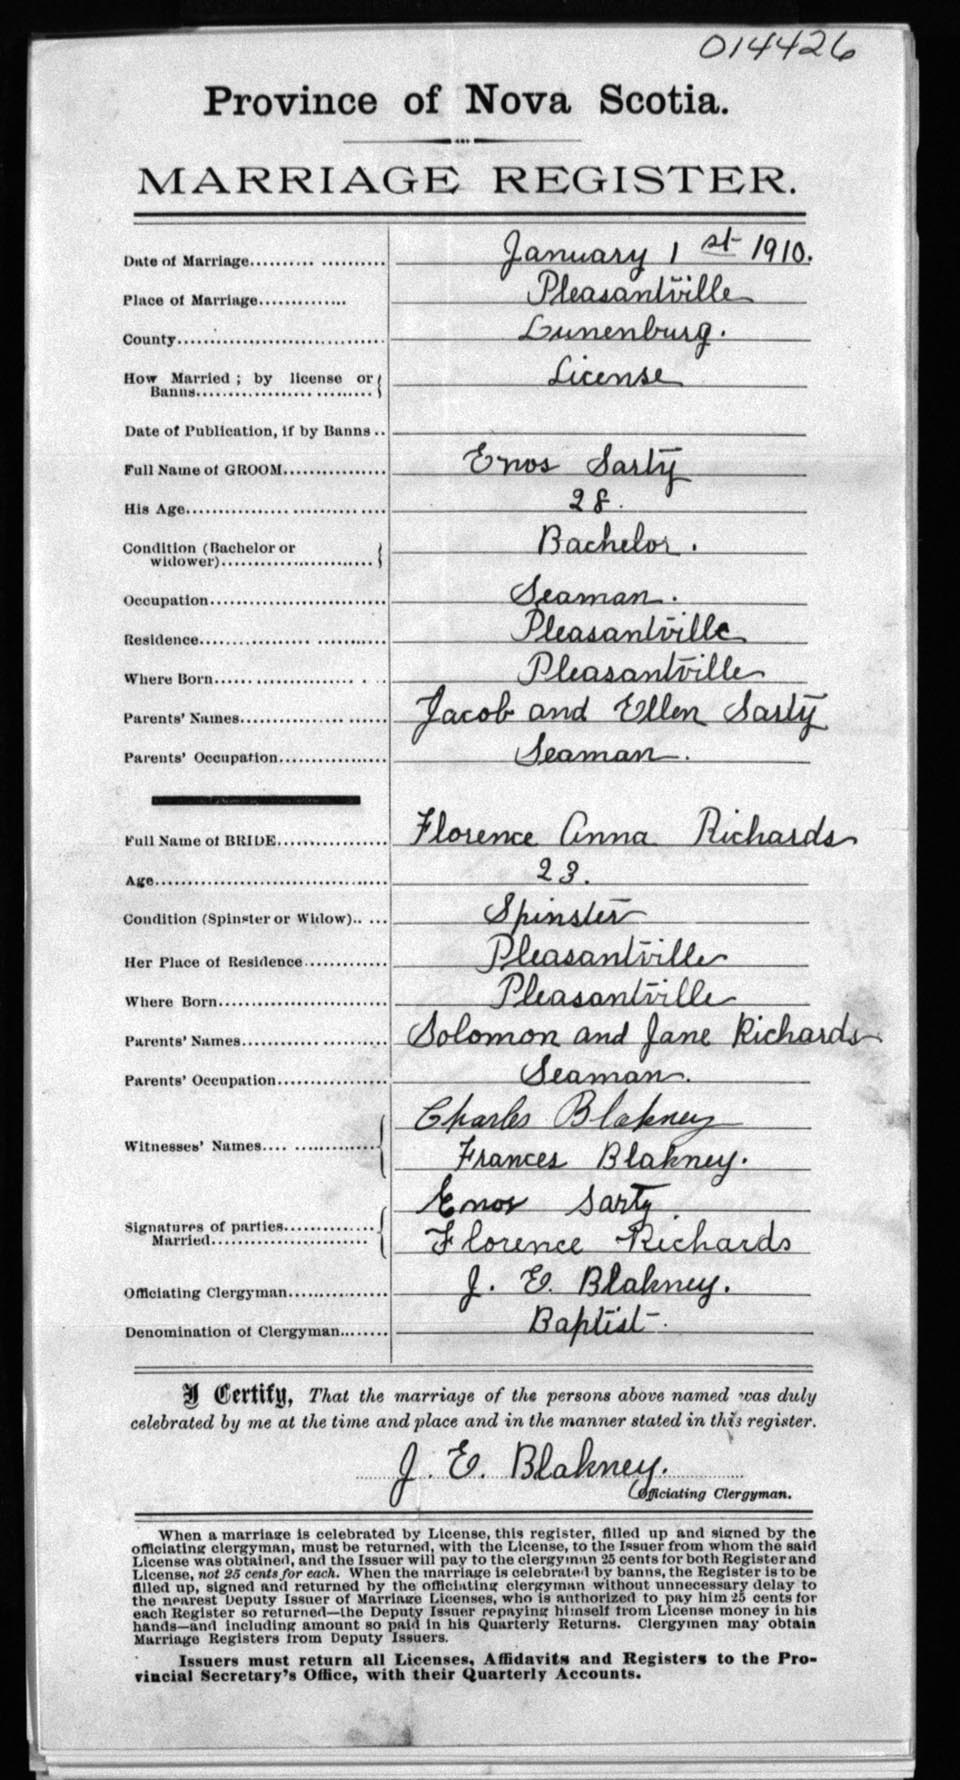 014426
Province of Nova Scotia.
MARRIAGE REGISTER.
Date of Marriage.......... .......... January 1st 1910.
Place of Marriage.............. Pleasantville
County................................ Lunenburg.
How Married; by license or Banns................... ......... License
Date of Publication, if by Banns ..
Full Name of GROOM................ Enos Sarty
His Age................ .............. 28.
Condition (Bachelor or widower)......................... Bachelor.
Occupation........................... Seaman.
Residence................. ........... Pleasantville
Where Born...... ................... . .. Pleasantville
Parents' Names................. ...... Jacob and Ellen Sarty
Parents' Occupation................. Seaman.
Full Name of BRIDE................. Florence Anna Richards
Age..................................... 23.
Condition (Spinster or Widow).. .... Spinster
Her Place of Residence............. Pleasantville
Where Born........................... Pleasantville
Parents' Names............ ............ Solomon and Jane Richards
Parents' Occupation.................. Seaman.
Witnesses' Names.... .............. Charles Blakney
Frances Blakney.
Signatures of parties Married......................... Enos Sarty
Florence Richards
Officiating Clergyman............... J. E. Blakney.
Denomination of Clergyman........ Baptist.
I Certify, That the marriage of the persons above named was duly
celebrated by me at the time and place and in the manner stated in this register.
J. E. Blakney.
Officiating Clergyman.
When a marriage is celebrated by License, this register, filled up and signed by the
officiating clergyman, must be returned, with the License, to the Issuer from whom the said
License was obtained, and the Issuer will pay to the clergyman 25 cents for both Register and
License, not 25 cents for each. When the marriage is celebrated by banns, the Register is to be
filled up, signed and returned by the officiating clergyman without unnecessary delay to
the nearest Deputy Issuer of Marriage Licenses, who is authorized to pay him 25 cents for
each Register so returned—the Deputy Issuer repaying himself from License money in his
hands—and including amount so paid in his Quarterly Returns. Clergymen may obtain
Marriage Registers from Deputy Issuers.
Issuers must return all Licenses, Affidavits and Registers to the Pro-
vincial Secretary's Office, with their Quarterly Accounts.